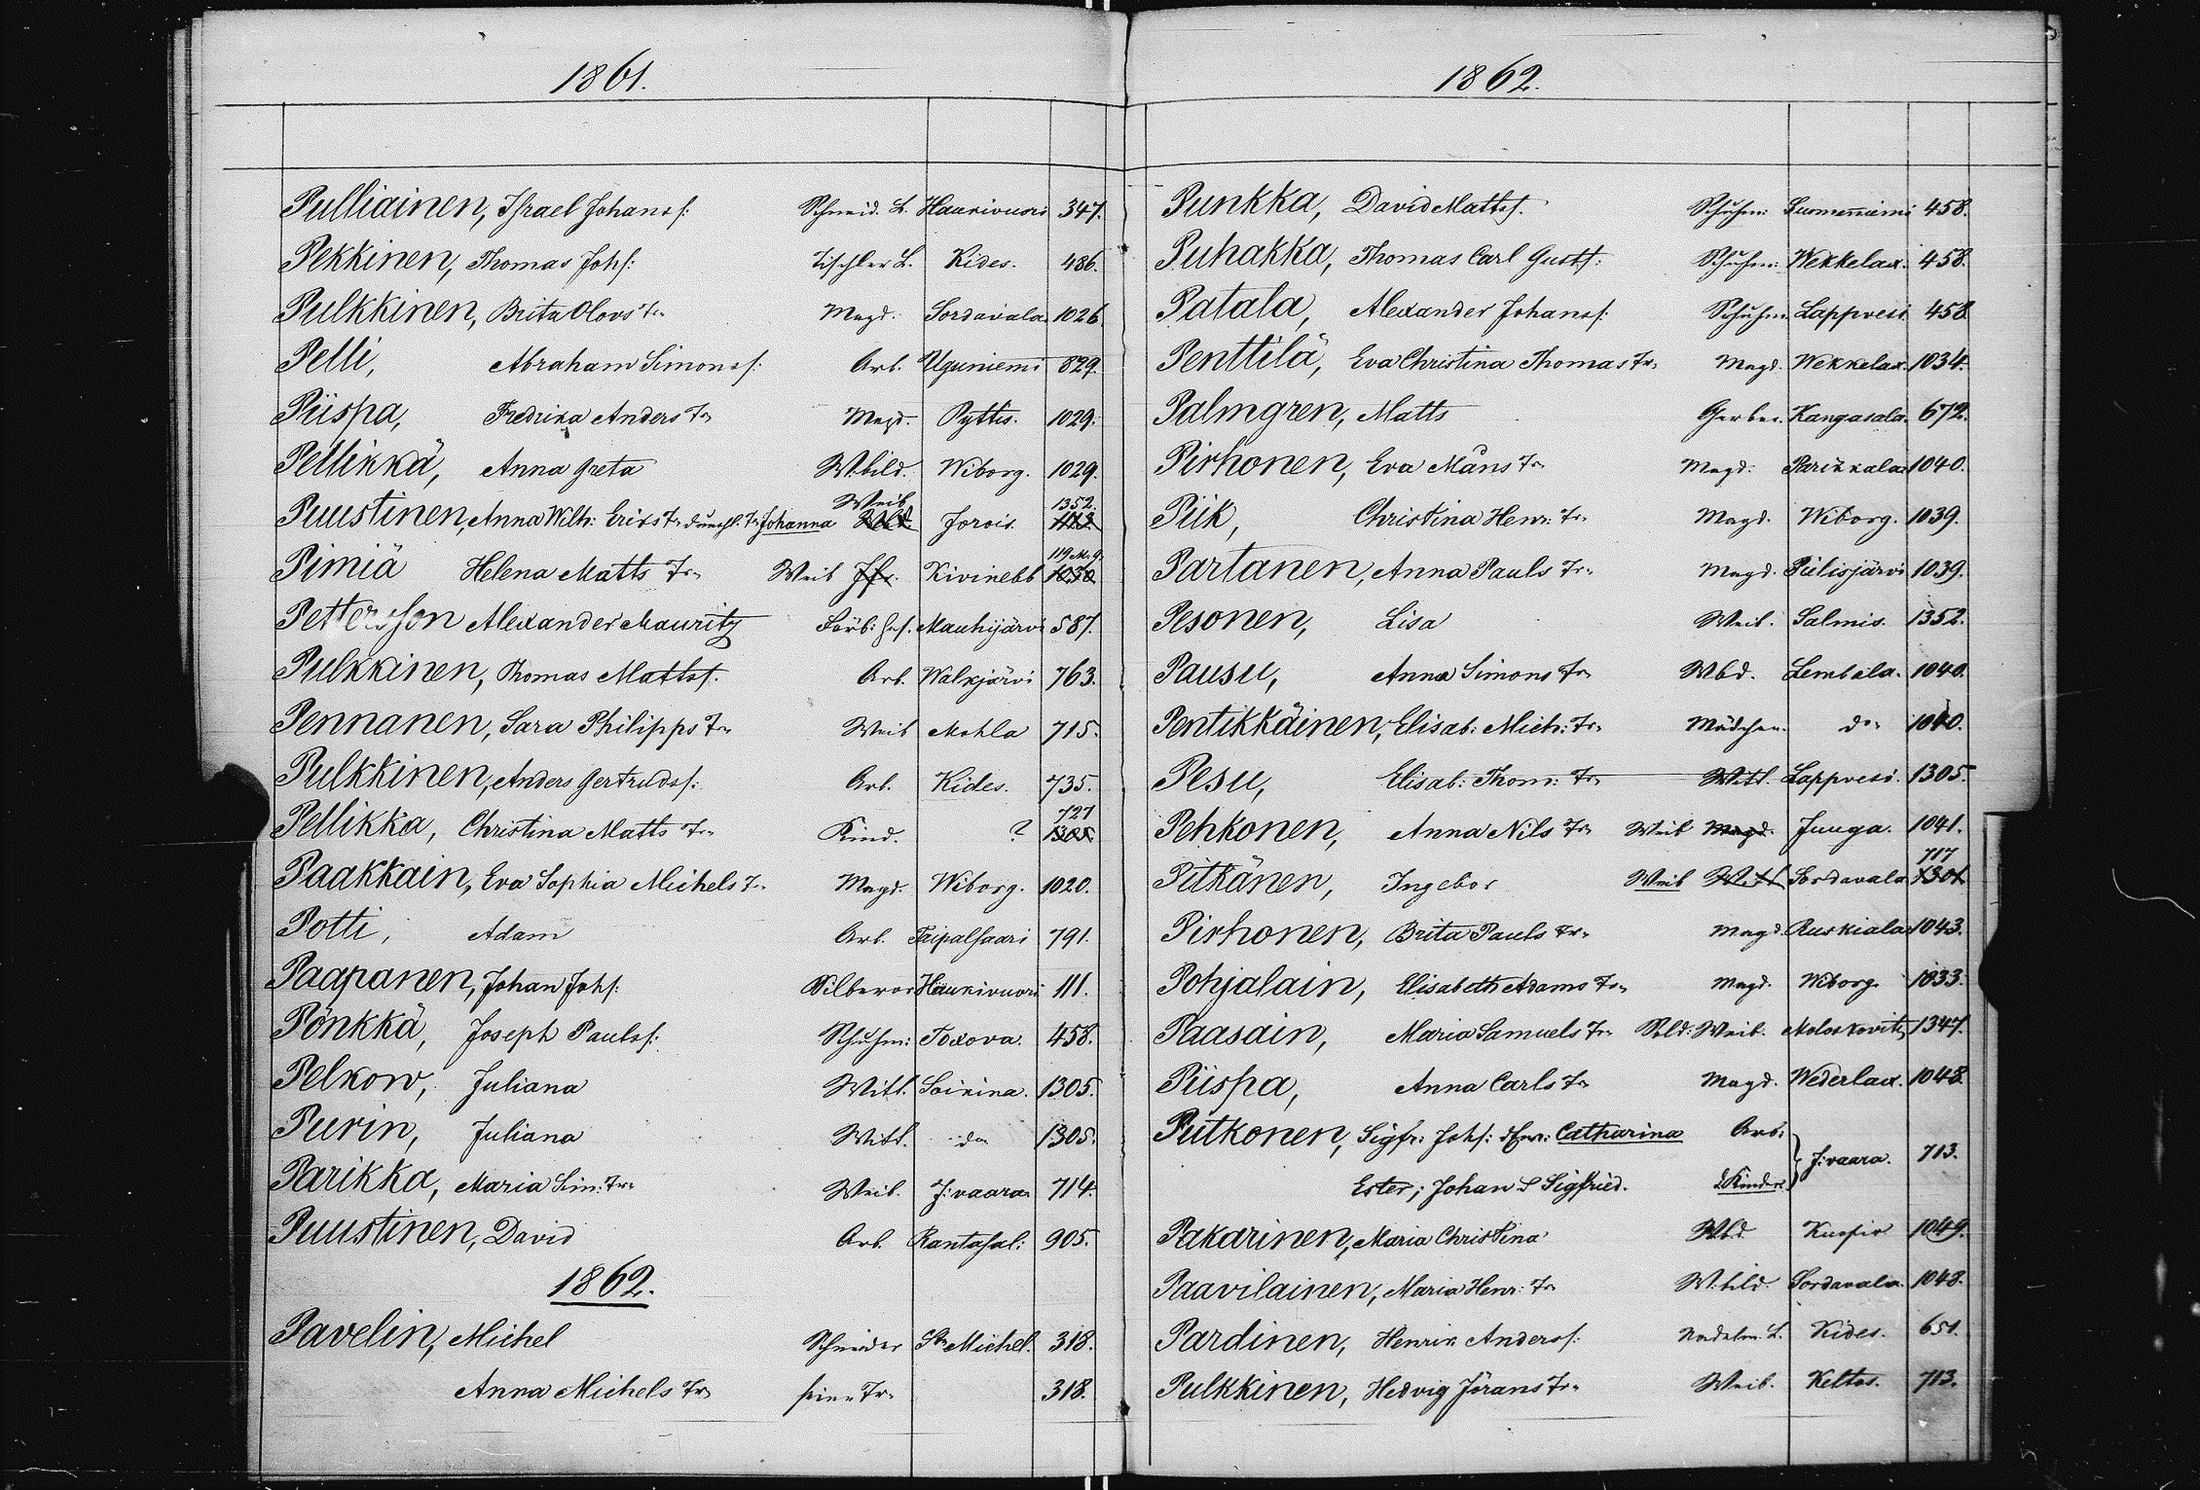 1861.
Pulliainen, Israel Johanss: Schneid. L. Haukivuori 347.
Pekkinen, Thomas Johs: Tischler L. Kides. 486.
Pulkkinen, Brita Olovs Tr. Magd. Sordavala 1026.
Pelli, Abraham Simonss: Arb. Uguniemi 829.
Piispa, Fredrika Anders Tr. Magd. Pyttis. 1029.
Pellikkä, Anna Greta W.bild. Wiborg. 1029.
Weib 1352.
Puustinen, Anna Wilh: Eriks Tr. Tr. Johanna Jorois.
119
Pimiä Helena Matts Tr. Weib Jfr. Kivinebb 1030.
Pettersson Alexander Mauritz Färb: Ges. Mauhijärvi 587.
Pulkkinen, Thomas Mattss. Arb. Walkjärvi 763.
Pennanen, Sara Philipps Tr. Weib Mohla 715.
Pulkkinen, Anders Gertrudss: Arb. Kides. 735.
727
Pellikka, Christina Matts Tr. Kind. ? 1305.
Paakkain, Eva Sophia Michels Tr. Magd. Wiborg. 1020.
Potti, Adam Arb. Taipalsaari 791.
Paapanen, Johan Johs: Haukivuori 111.
Pönkkä, Joseph Paulss: Schuhm: Toxova. 458.
Pelkow, Juliana Witt. Soikina. 1305.
Purin, Juliana Witt. do 1305.
Parikka, Maria Sim: Tr. Weib. J:vaara 714.
Puustinen, David Arb. Rantasal: 905.
1862.
Pavelin, Michel Schneider St. Michel. 318.
Anna Michels Tr. seine Tr. 318.
1862.
Punkka, David Mattss. Schuhm: Suomenniemi 458.
Puhakka, Thomas Carl Gusts: Schuhm: Wekkelax. 458.
Patala, Alexander Johanss: Schuhm. Lappvesi 458.
Penttilä, Eva Christina Thomas Tr. Magd. Wekkelax. 1034.
Palmgren, Matts Gerber. Kangasala. 672.
Pirhonen, Eva Måns Tr. Magd. Parikkala 1040.
Piik, Christina Henr: Tr. Magd. Wiborg. 1039.
Partanen, Anna Pauls Tr. Magd. Pielisjärvi 1039.
Pesonen, Lisa Weib. Salmis. 1352.
Pausu, Anna Simons Tr. Wbd. Lembala. 1040.
Pentikkäinen, Elisab: Mich: Tr. Mädchen. do 1040.
Pesu, Elisab: Thom: Tr. Witt. Lappvesi. 1305.
Pehkonen, Anna Nils Tr. Weib Magd. Juuga. 1041.
717
Pitkänen, Ingebor Weib Witt Sordavala 1301
Pirhonen, Brita Pauls Tr. Magd. Ruskiala 1043.
Pohjalain, Elisabeth Adams Tr. Magd. Wiborg. 1033.
Paasain, Maria Samuels Tr. Sold: Weib. Moloskovitz 1347.
Piispa, Anna Carls Tr. Magd. Wederlax. 1048.
Putkonen, Sigfr: Johs: Catharina Arb.
J:vaara. 713.
Ester; Johan & Sigfried. & Kinder
Pakarinen, Maria Christina Wbd Kuopio 1049.
Paavilainen, Maria Henr: Tr. W.bild. Sordavala. 1048.
Pardinen, Henrik Anderss: Nadelm. L. Kides. 651.
Pulkkinen, Hedvig Jörans Tr. Weib. Keltos. 713.